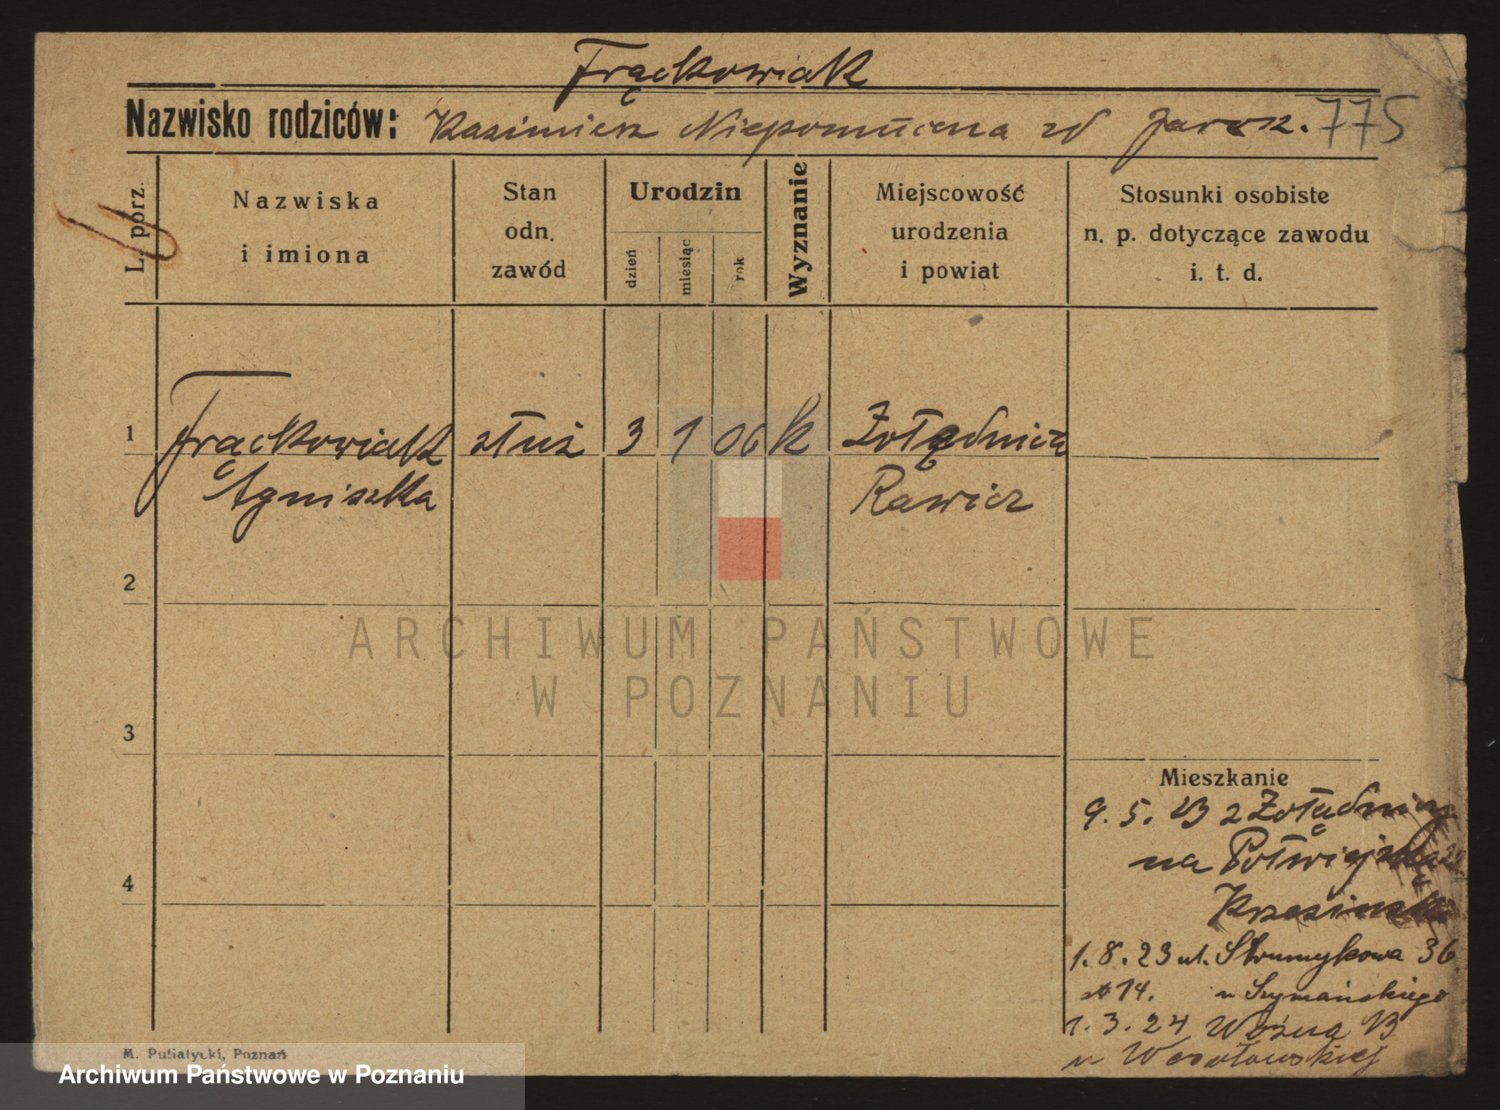 Frąckowiak
Nazwisko rodziców: Kazimierz Niepomucena zd Jarosz. 775
L. porz.
Nazwiska
i imiona
Stan
odn.
zawód
Urodzin
dzień
miesiąc
rok
Wyznanie
Miejscowość
urodzenia
i powiat
Stosunki osobiste
n. p. dotyczące zawodu
i. t. d.
1 Frąckowiak służ 3 1 06 k Żołędnica
Agniszka Rawicz
2
ARCHIWUM PAŃSTWOWE
W POZNANIU
3
Mieszkanie
9. 5. 23 z Żołędnicy
na Półwiejską
4
1. 8. 23 ul. Strumykowa 36
14. u Szymańskiego
1. 3. 24 Woźna 13
u Wesołowskiej
M. Putiatycki, Poznań
Archiwum Państwowe w Poznaniu